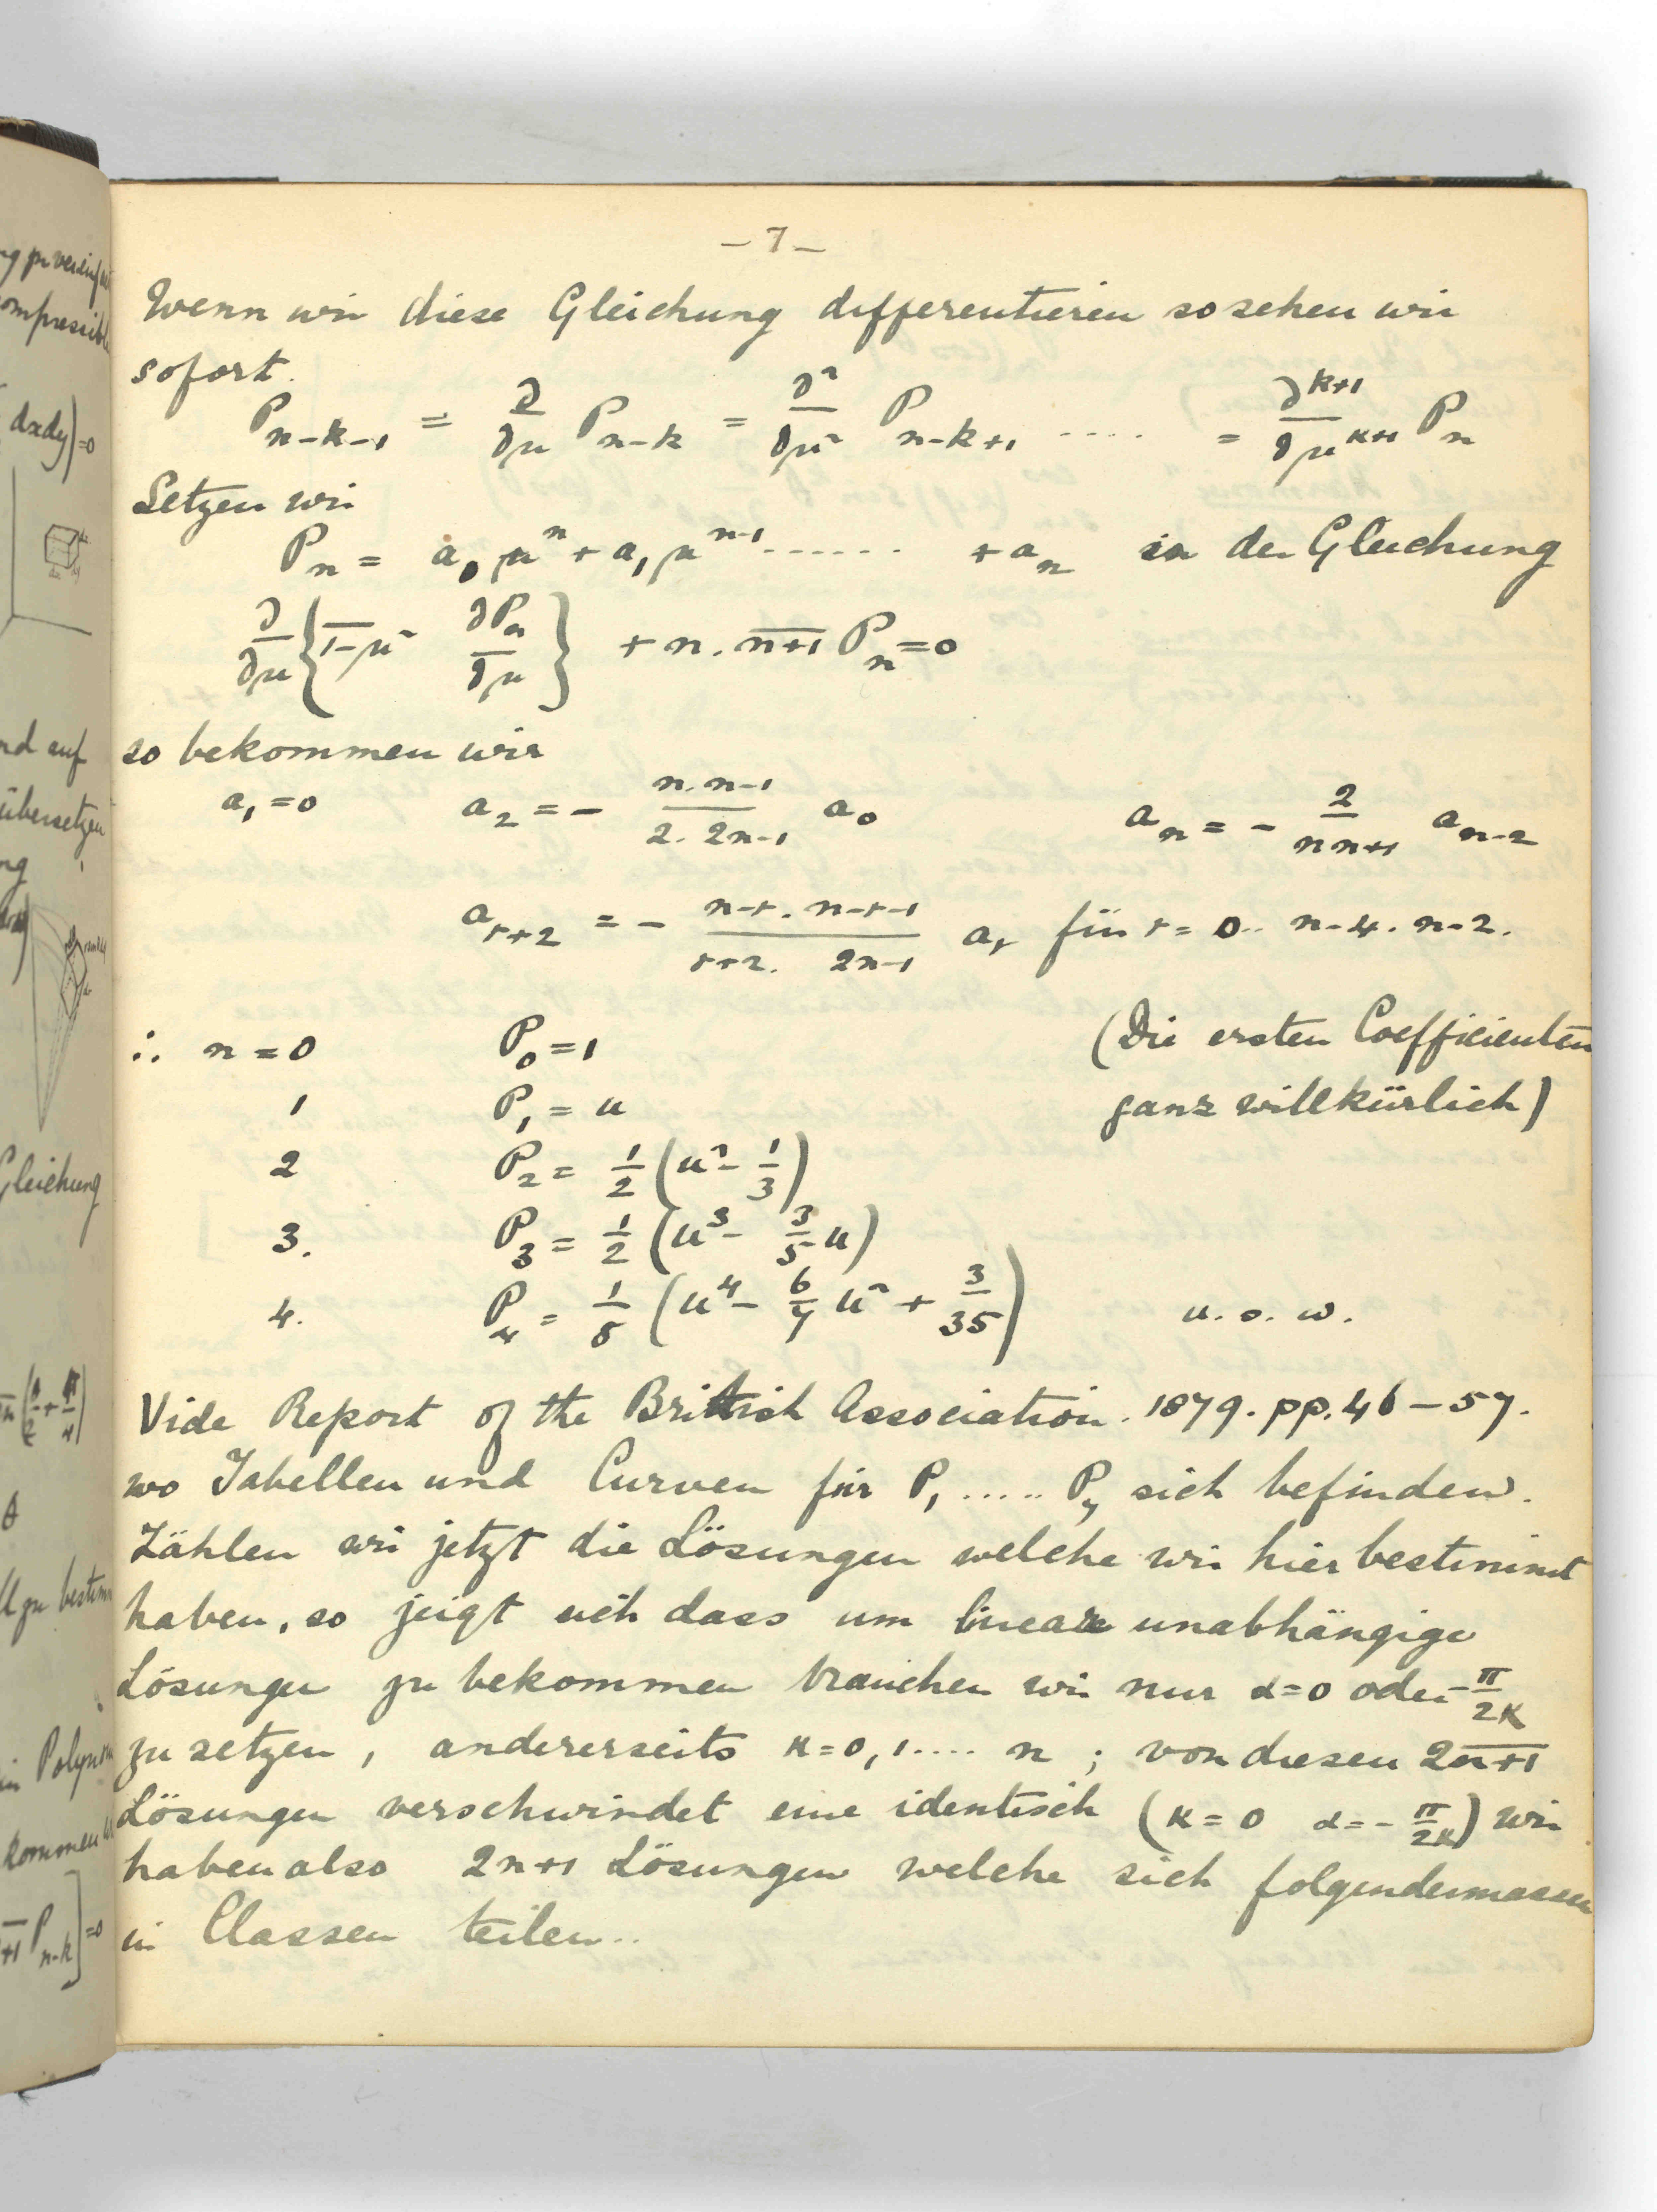 – 7 –
Wenn wir diese Gleichung differentieren so sehen wir
sofort.
P_{n-k-1} = ∂/∂μ P_{n-k} = ∂²/∂μ² P_{n-k+1} ..... = ∂^{k+1}/∂μ^{k+1} P_n
Setzen wir
P_n = a_0 μ^n + a_1 μ^{n-1} ...... + a_n in der Gleichung
∂/∂μ { \overline{1-μ²} ∂P_n/∂μ } + n. \overline{n+1} P_n = 0
so bekommen wir
a_1 = 0 a_2 = - (n.n-1)/(2. 2n-1) a_0 a_n = - 2/(n n+1) a_{n-2}
a_{r+2} = - (n-r. n-r-1)/(r+2. 2n-1) a_r für r = 0.. n-4. n-2.
∴ n = 0 P_0 = 1 (Die ersten Coefficienten
1 P_1 = u ganz willkürlich)
2 P_2 = 1/2 (u² - 1/3)
3. P_3 = 1/2 (u³ - 3/5 u)
4. P_4 = 1/8 (u⁴ - 6/7 u² + 3/35) u. s. w.
Vide Report of the British Association. 1879. pp. 46–57.
wo Tabellen und Curven für P_1 ..... P_7 sich befinden.
Zählen wir jetzt die Lösungen welche wir hier bestimmt
haben, so zeigt sich dass um lineare unabhängige
Lösungen zu bekommen brauchen wir nur α=0 oder -π/2κ
zu setzen, andererseits κ=0,1.... n ; von diesen 2\overline{n+1}
Lösungen verschwindet eine identisch (κ=0 α=-π/2κ) wir
haben also 2n+1 Lösungen welche sich folgendermassen
in Classen teilen..
dxdy)=0
nd auf
übersetzen
ng
Gleichung
θ
in Polynom
kommen
P_{n-k}]=0